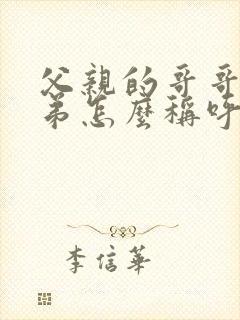 父親的哥哥
弟怎麼稱呼
李信華